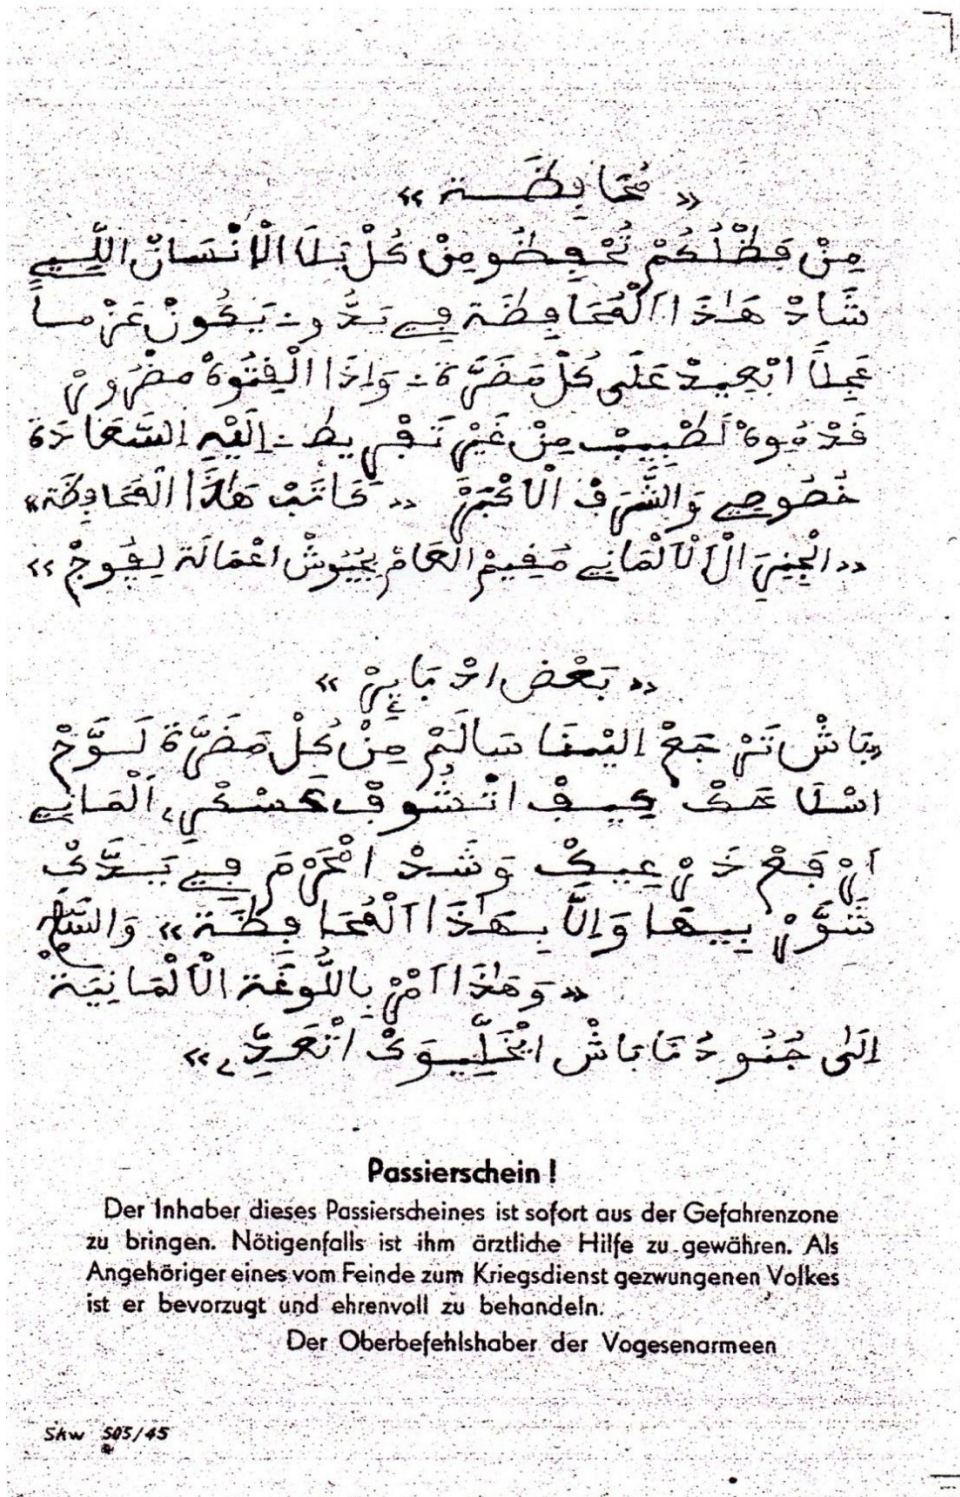 « مُحَافِظَة »
مِنْ فَظْلُكُمْ تُحْفِظُو مِنْ كُلْ بَلَا الْأَنْسَانْ اللِّي
شَادْ هَاذَا الْمُحَافِظَة فِي يَدُّو ـ يَكُونْ عَزْماً
عَجِلَا ابْعِيدْ عَلَى كُلْ مَضَرَّة ـ وَاِذَا الْفِتُوهْ مضْرُورْ
قَدْمُوهْ لَطْبِيبْ مِنْ غَيْرْ تَفْرِيطْ ـ اِلَيْهِ السَّعَادَة
خُصُوصِي وَالشَّرَفْ الْاَكْبَرْ « كَاتَبْ هَاذَا الْمُحَافِظَة »
« الْجِنِرَالْ الْاَلْمَانِي مُقِيمْ الْعَامْ جُيُوشْ اعْمَالَة لِفُوجْ »
« بَعْضْ ادْبَايرْ »
« بَاشْ تَرْجَعْ اليْنَا سَالَمْ مِّنْ كُلْ مَضَرَّة لَوَّحْ
اسْلَاحَكْ كِيفْ اتْشُوفْ عَسْكْرِي اَلْمَانِي
اَرْفَعْ ذَرْعِيكْ وَشَدْ امْحَرْمَ فِي يَدَّكْ
شَوَّرْ بِيهَا وَاِلَّا بِهَاذَا الْمُحَافِظَة » وَالسَّلَامْ
« وَهَاذَا اَمْرْ بِاللُّوغَة الْاَلْمَانِيَة
اِلَى جُنُودُنَا بَاشْ ايْخَلِّيوَكْ اتْعَدِّي »
Passierschein !
Der Inhaber dieses Passierscheines ist sofort aus der Gefahrenzone
zu bringen. Nötigenfalls ist ihm ärztliche Hilfe zu gewähren. Als
Angehöriger eines vom Feinde zum Kriegsdienst gezwungenen Volkes
ist er bevorzugt und ehrenvoll zu behandeln.
Der Oberbefehlshaber der Vogesenarmeen
Skw 505/45